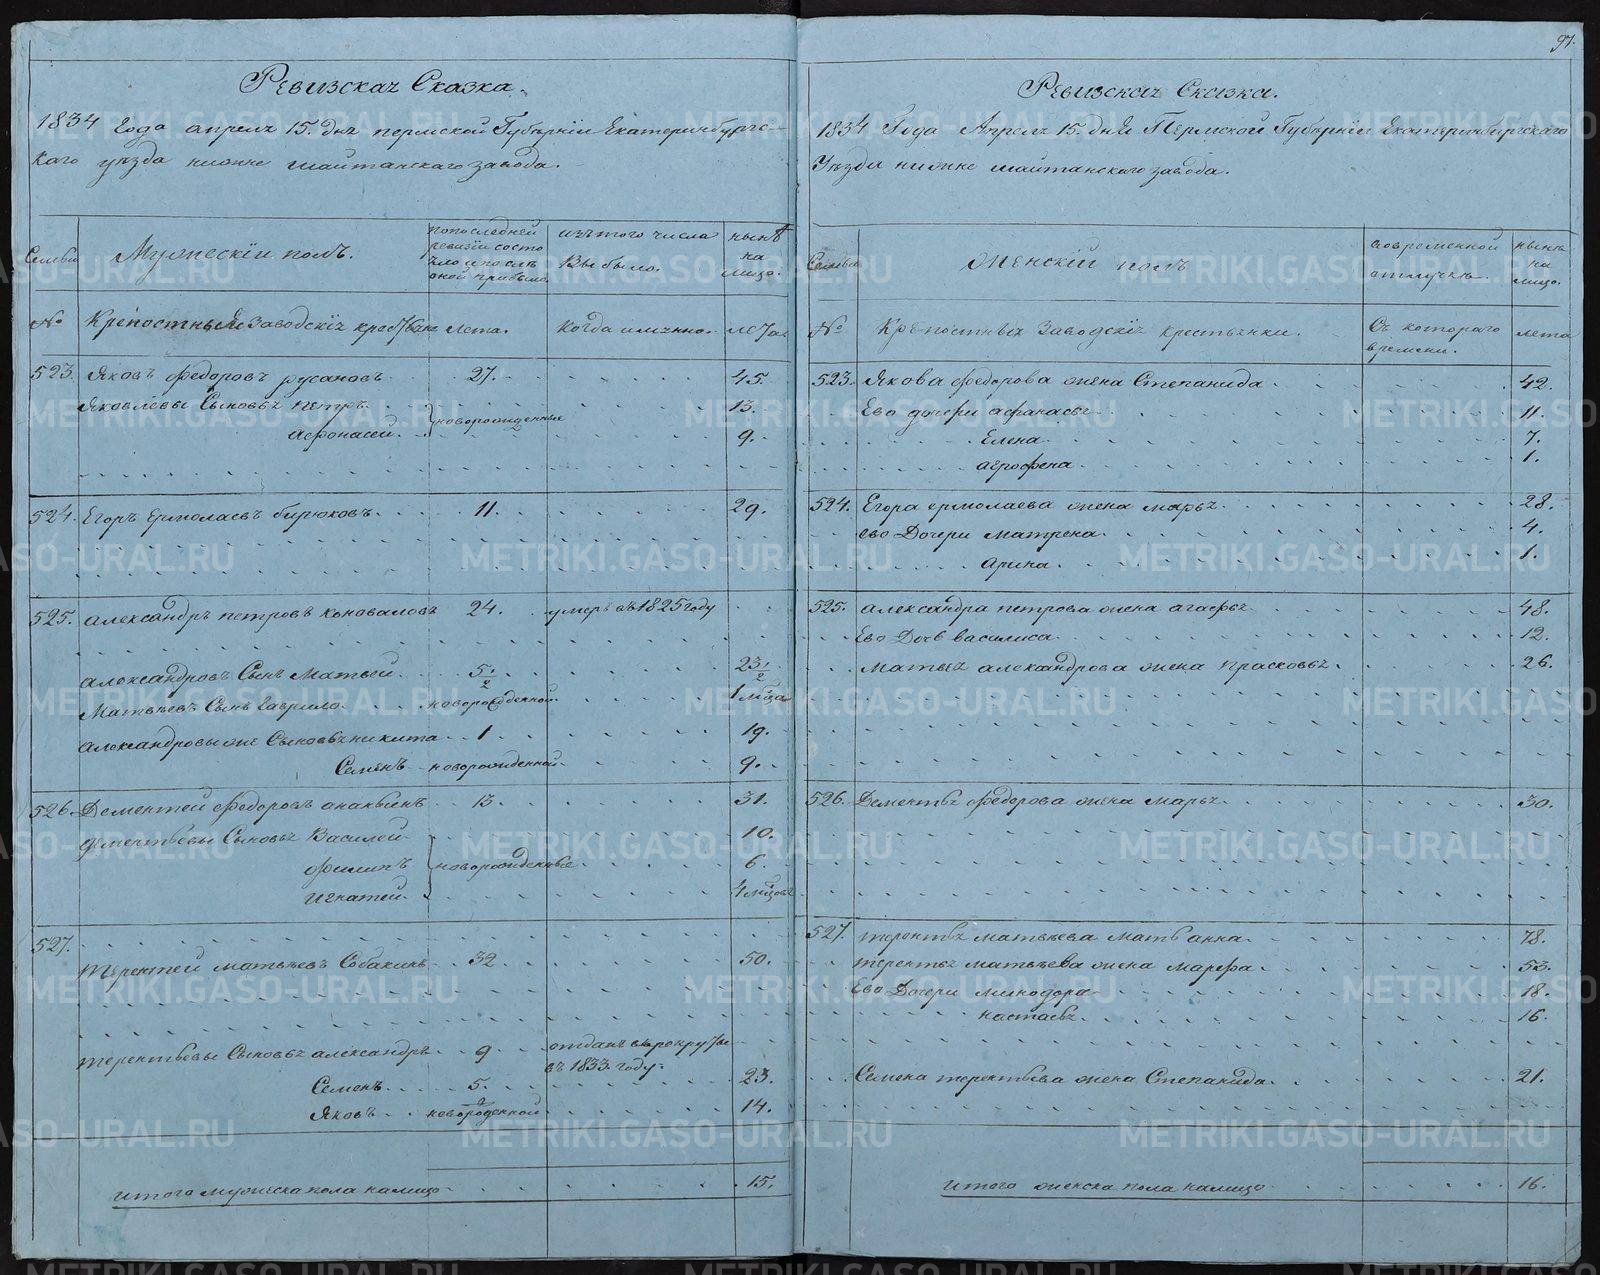 97.
Ревизская Сказка.
1834 Года апреля 15. дня пермской Губѣрнїи Екатеринбургс-
каго уѣзда нижне шайтанскаго завода.
Семьи
Мужескїй полъ.
попоследней ревизїи состо яло и послѣ оной прибыло.
изътого числа Выбыло.
нынѣ на лицо.
№
Крепостныя Заводскїя крестьяне
лета.
когда имянно.
лета
523. Яковъ федоровъ русановъ 27. 45.
Яковлевы Сыновья петръ 13.
новорожденные
Афонасей. 9.
524. Егоръ Ермолаевъ бирюковъ. 11. 29.
525. александръ петровъ коноваловъ 24. умеръ въ 1825 году
александровъ Сынъ Матвей. 5 1/2 23 1/2
Матвѣевъ Сынъ гаврило новорожденной. 1 мца
александровы же Сыновья никита 1 19.
Семенъ новорожденной 9.
526. Дементей федоровъ ананьинъ 13. 31.
дементьевы Сыновья Василей 10.
филипъ новорожденные 6.
игнатей 4 мцовъ
527.
терентей матвѣевъ Собакинъ 32 50.
терентьевы Сыновья александръ 9 отданъ в рекруты въ 1833. году.
Семенъ 5. 23.
Яковъ новорожденной 14.
итого мужеска пола налицо 15.
Ревизская Сказка.
1834 Года Апреля 15. дня Пермской Губѣрнїи Екатеринбургскаго
Уѣзда нижне шайтанскаго завода.
Семьи
Женскїй полъ
вовременной отлучкѣ.
нынѣ на лицо.
№
Крепостныя Заводскїя крестьянки.
Съ котораго времени.
лета
523. Якова федорова жена Степанида 42.
Ево дочери афанасья 11.
Елена 7.
агрофена 1.
524. Егора ермолаева жена марья 28.
ево Дочери матрена 4.
арина 1.
525. александра петрова жена агафья 48.
Ево Дочь василиса 12.
матвея александрова жена прасковья 26.
526. Дементья федорова жена марья 30.
527. терентья матвѣева мать анна 78.
терентья матвѣева жена марфа 53.
Ево Дочери минодора 18.
настасья 16.
Семена терентьева жена Степанида 21.
итого женска пола налицо 16.
METRIKI.GASO-URAL.RU